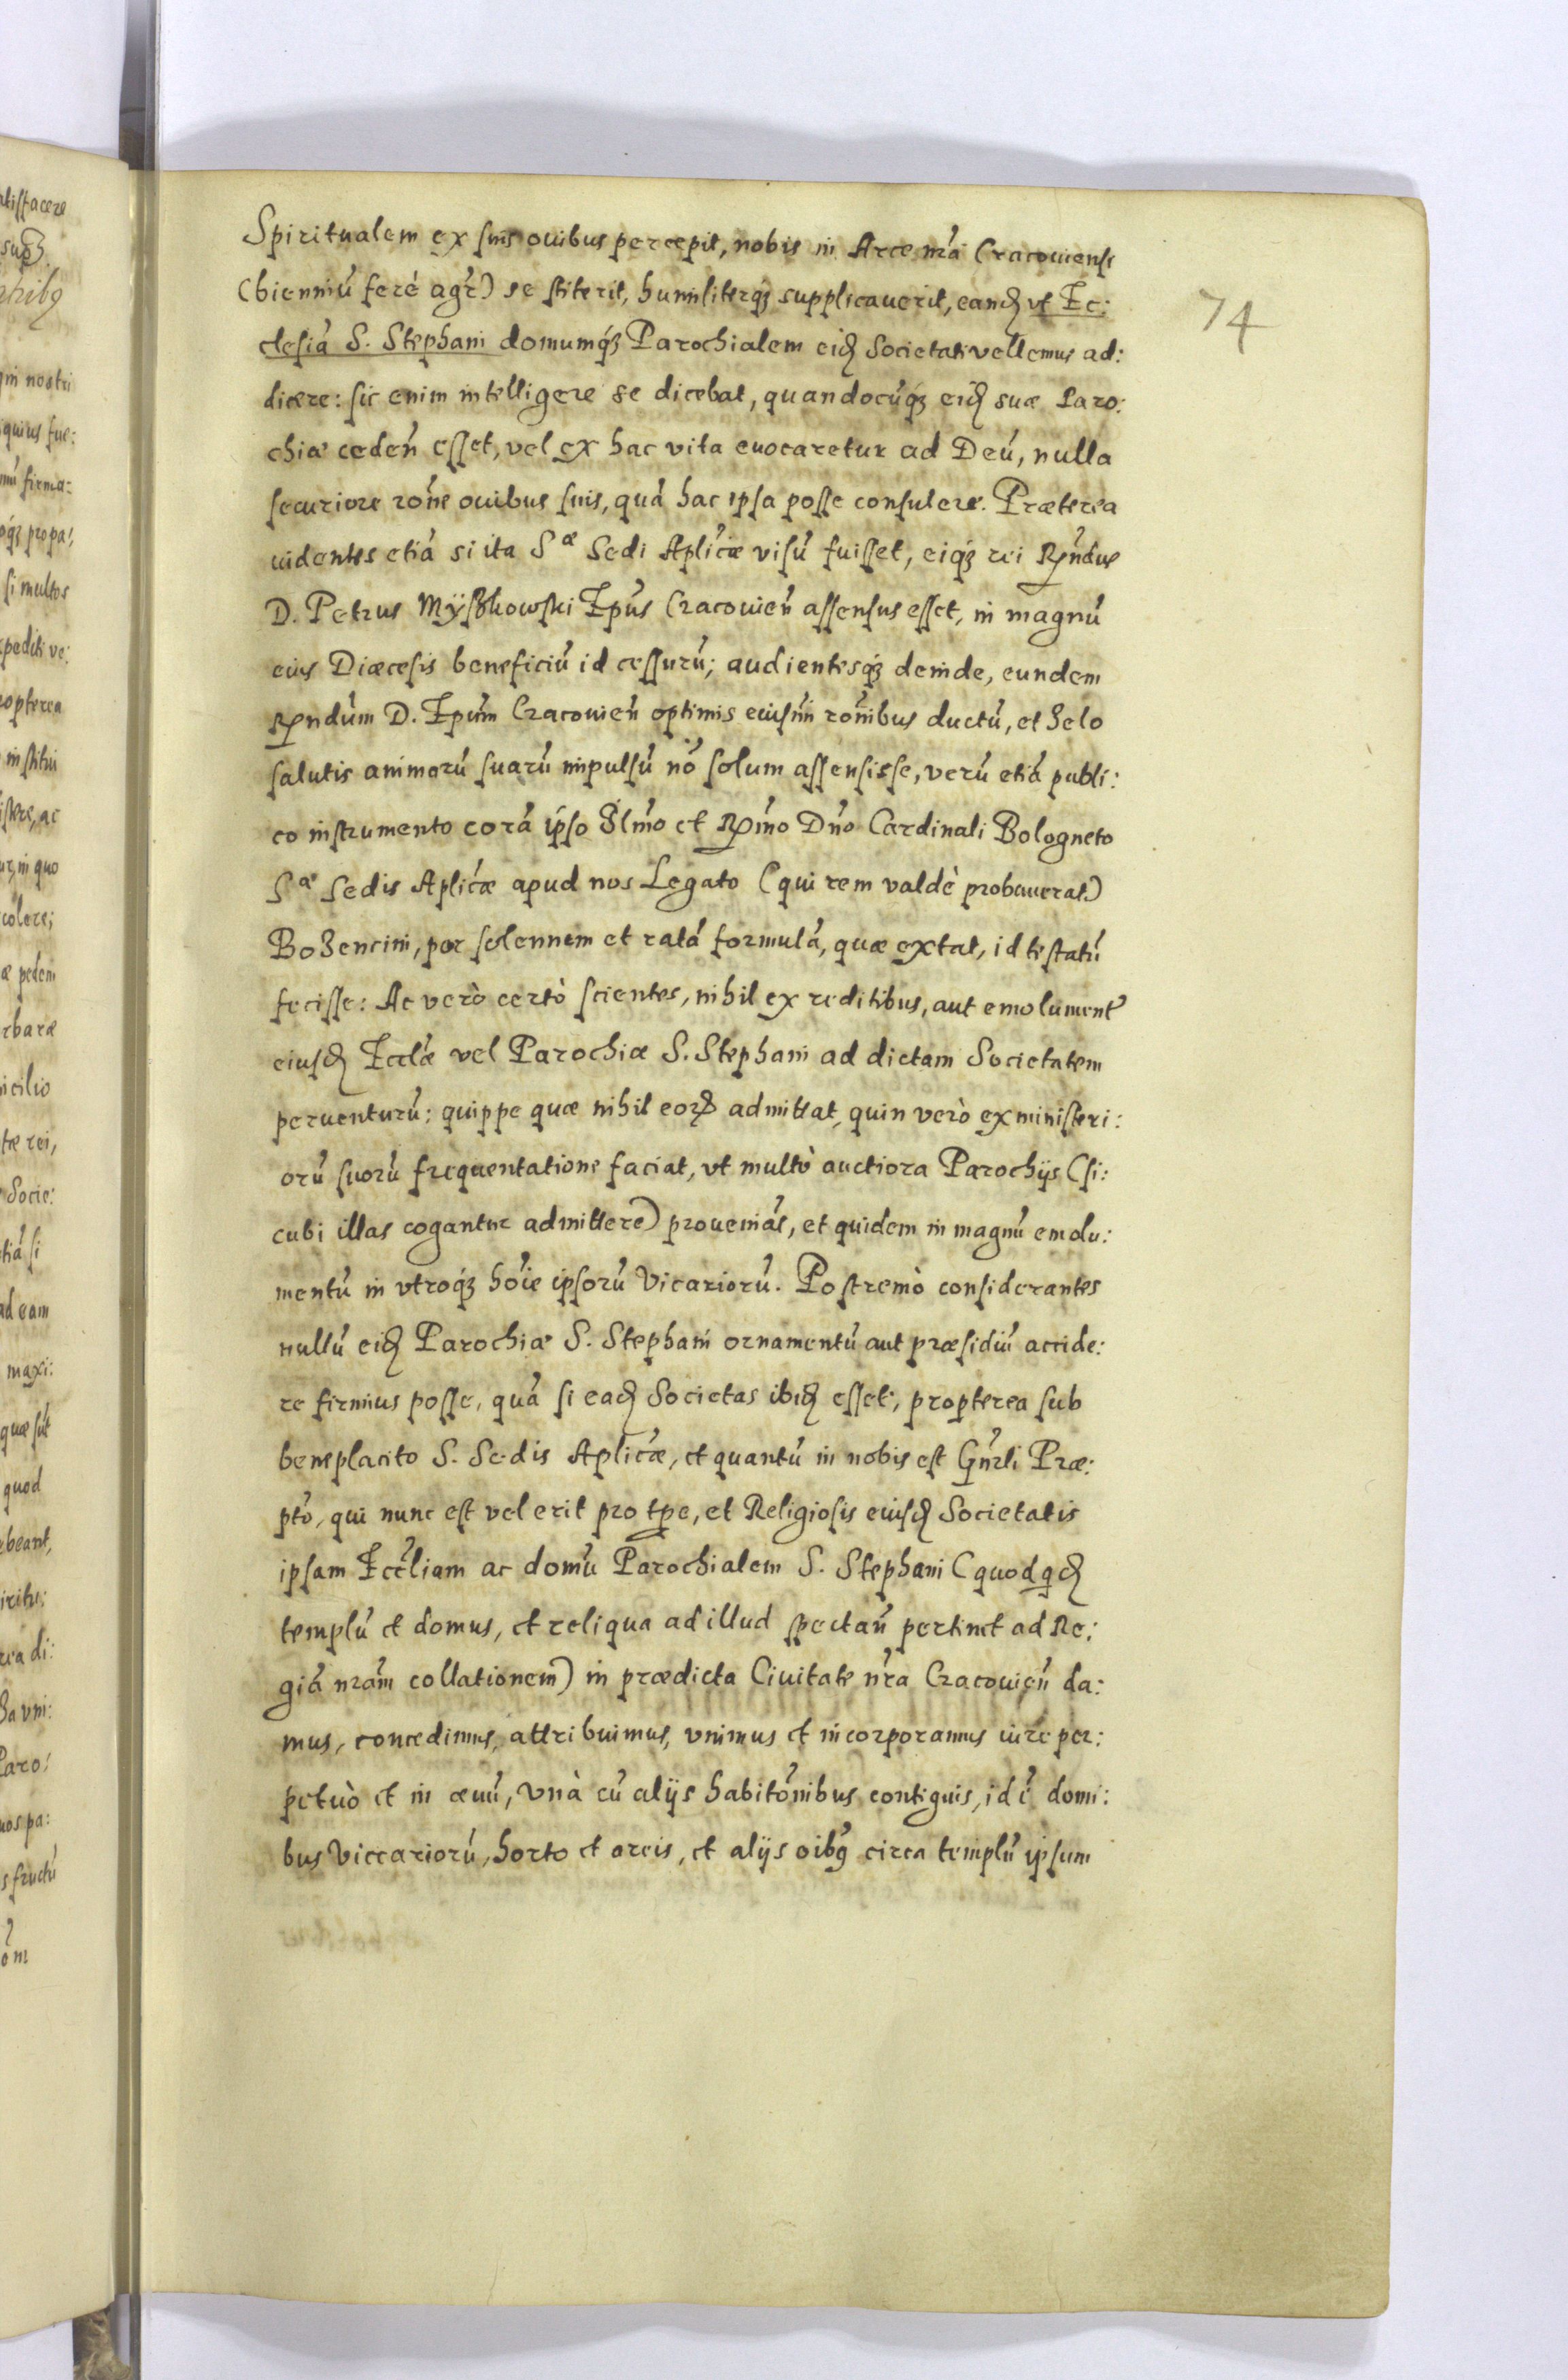 74
Spiritualem ex suis ouibus percepit, nobis in Arce nrã Cracouiensi
(bienniũ ferè agr̃) se stiterit, humiliterq́ꝫ supplicauerit, eandꝫ vt Ec:
clesiã S. Stephani domumq́ꝫ Parochialem eidꝫ Societati vellemus ad:
dicere: sic enim intelligere se dicebat, quandocũq́ꝫ eidꝫ suæ Paro:
chiæ ceden̄ esset, vel ex hac vita euocaretur ad Deũ, nulla
securiore rõne ouibus suis, quã hac ipsa posse consulere. Præterea
uidentes etiã si ita Sæ Sedi Aplic̃æ visũ fuisset, eiq́ꝫ rei Rñdus
D. Petrus Myszkowski Ep̃us Cracouien̄ assensus esset, in magnũ
eius Diæcesis beneficiũ id cessurũ; audientesq́ꝫ deinde, eundem
Rñdum D. Ep̃um Cracouien̄ optimis eiusm̃i rõnibus ductũ, et Zelo
salutis animarũ suarũ impulsũ nõ solum assensisse, verũ etiã publi:
co instrumento corã ipso Illm̃o et Rm̃o Dñō Cardinali Bologneto
Sæ Sedis Aplic̃æ apud nos Legato (qui rem valdè probauerat)
Bozencini, per solennem et ratã formulã, quæ extat, id testatũ
fecisse: Ac verò certò scientes, nihil ex reditibus, aut emolument̃
eiusdꝫ Eccl̃æ vel Parochiæ S. Stephani ad dictam Societatem
peruenturũ: quippe quæ nihil eorꝫ admittat, quin verò ex ministeri:
orũ suorũ frequentatione faciat, vt multò auctiora Parochijs (si:
cubi illas cogantur admittere) proueniãt, et quidem in magnũ emolu:
mentũ in vtroq́ꝫ hõie ipsorũ Vicariorũ. Postremò considerantes
nullũ eidꝫ Parochiæ S. Stephani ornamentũ aut præsidiũ accide:
re firmius posse, quã si eadꝫ Societas ibidꝫ esset; propterea sub
beneplacito S. Sedis Aplic̃æ, et quantũ in nobis est Gñrli Præ:
pt̃o, qui nunc est vel erit pro tp̃e, et Religiosis eiusdꝫ Societatis
ipsam Eccl̃iam ac domũ Parochialem S. Stephani (quod qdꝫ
templũ et domus, et reliqua ad illud spectan̄ pertinet ad Re:
giã nrãm collationem) in prædicta Ciuitate nr̃a Cracouien̄ da:
mus, concedimus, attribuimus, vnimus et incorporamus iure per:
petuò et in æuũ, vnà cũ alijs habitõnibus contiguis, id ẽ domi:
bus Viccariorũ, horto et areis, et alijs oĩbꝰ circa templũ ipsum